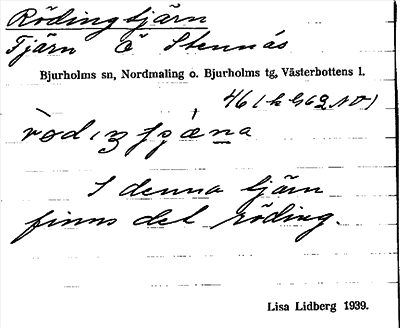 Rödingtjärn
Tjärn Ö Stennäs
Bjurholms sn, Nordmaling o. Bjurholms tg, Västerbottens l.
I denna tjärn
finns det röding.
Lisa Lidberg 1939.